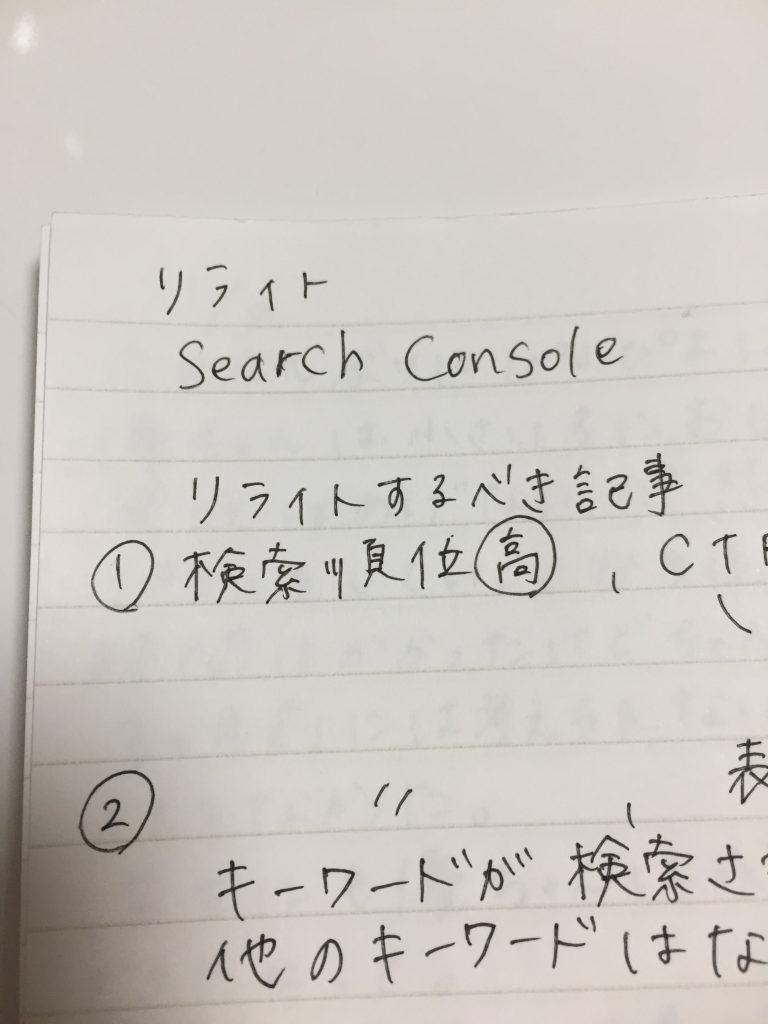 リライト
Search Console
リライトするべき記事
① 検索順位高、CT
② 〃 、表
キーワードが検索さ
他のキーワードはな